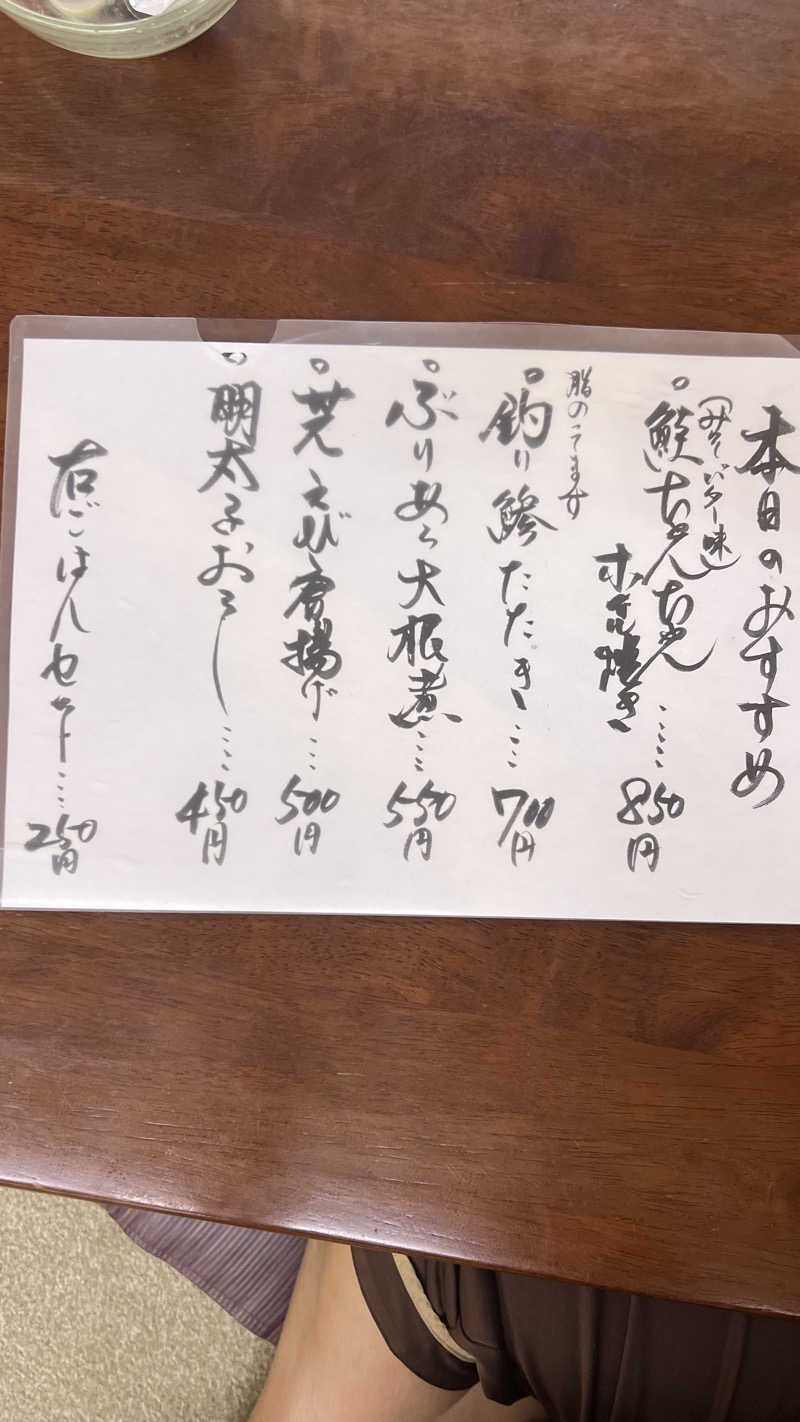 本日のおすすめ
(みそバター味)
鮭ちゃんちゃん
ホイル焼き……850円
脂のってます
釣り鯵たたき…700円
ぶりあら大根煮…550円
芝えび唐揚げ…500円
明太子おろし…450円
右ごはんセット…250円